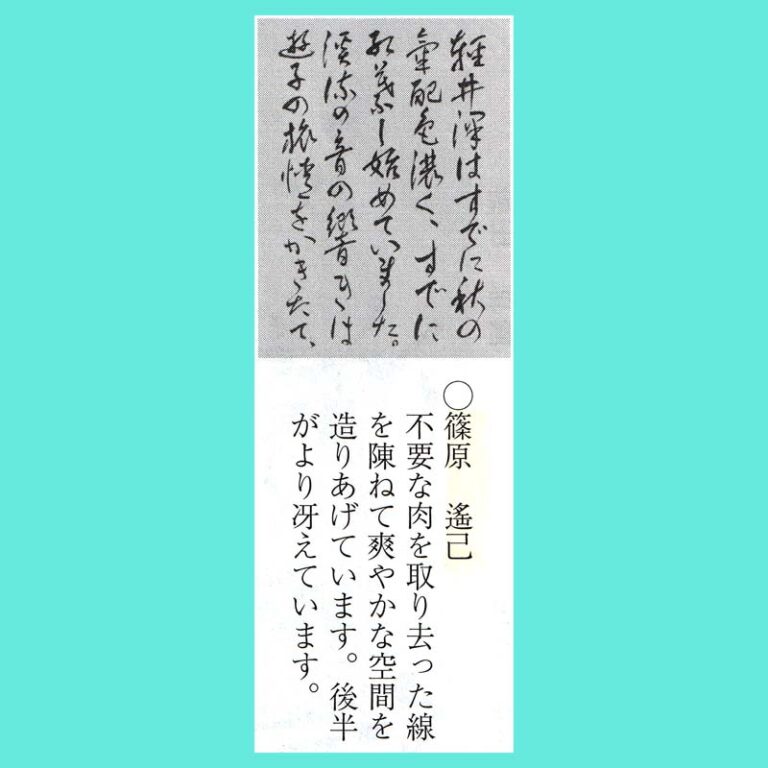 軽井澤はすでに秋の
氣配色濃く、すでに
紅葉し始めていました。
渓流の音の響きは
遊子の旅情を、かきたて、
○篠原 遙己
不要な肉を取り去った線
を陳ねて爽やかな空間を
造りあげています。後半
がより冴えています。